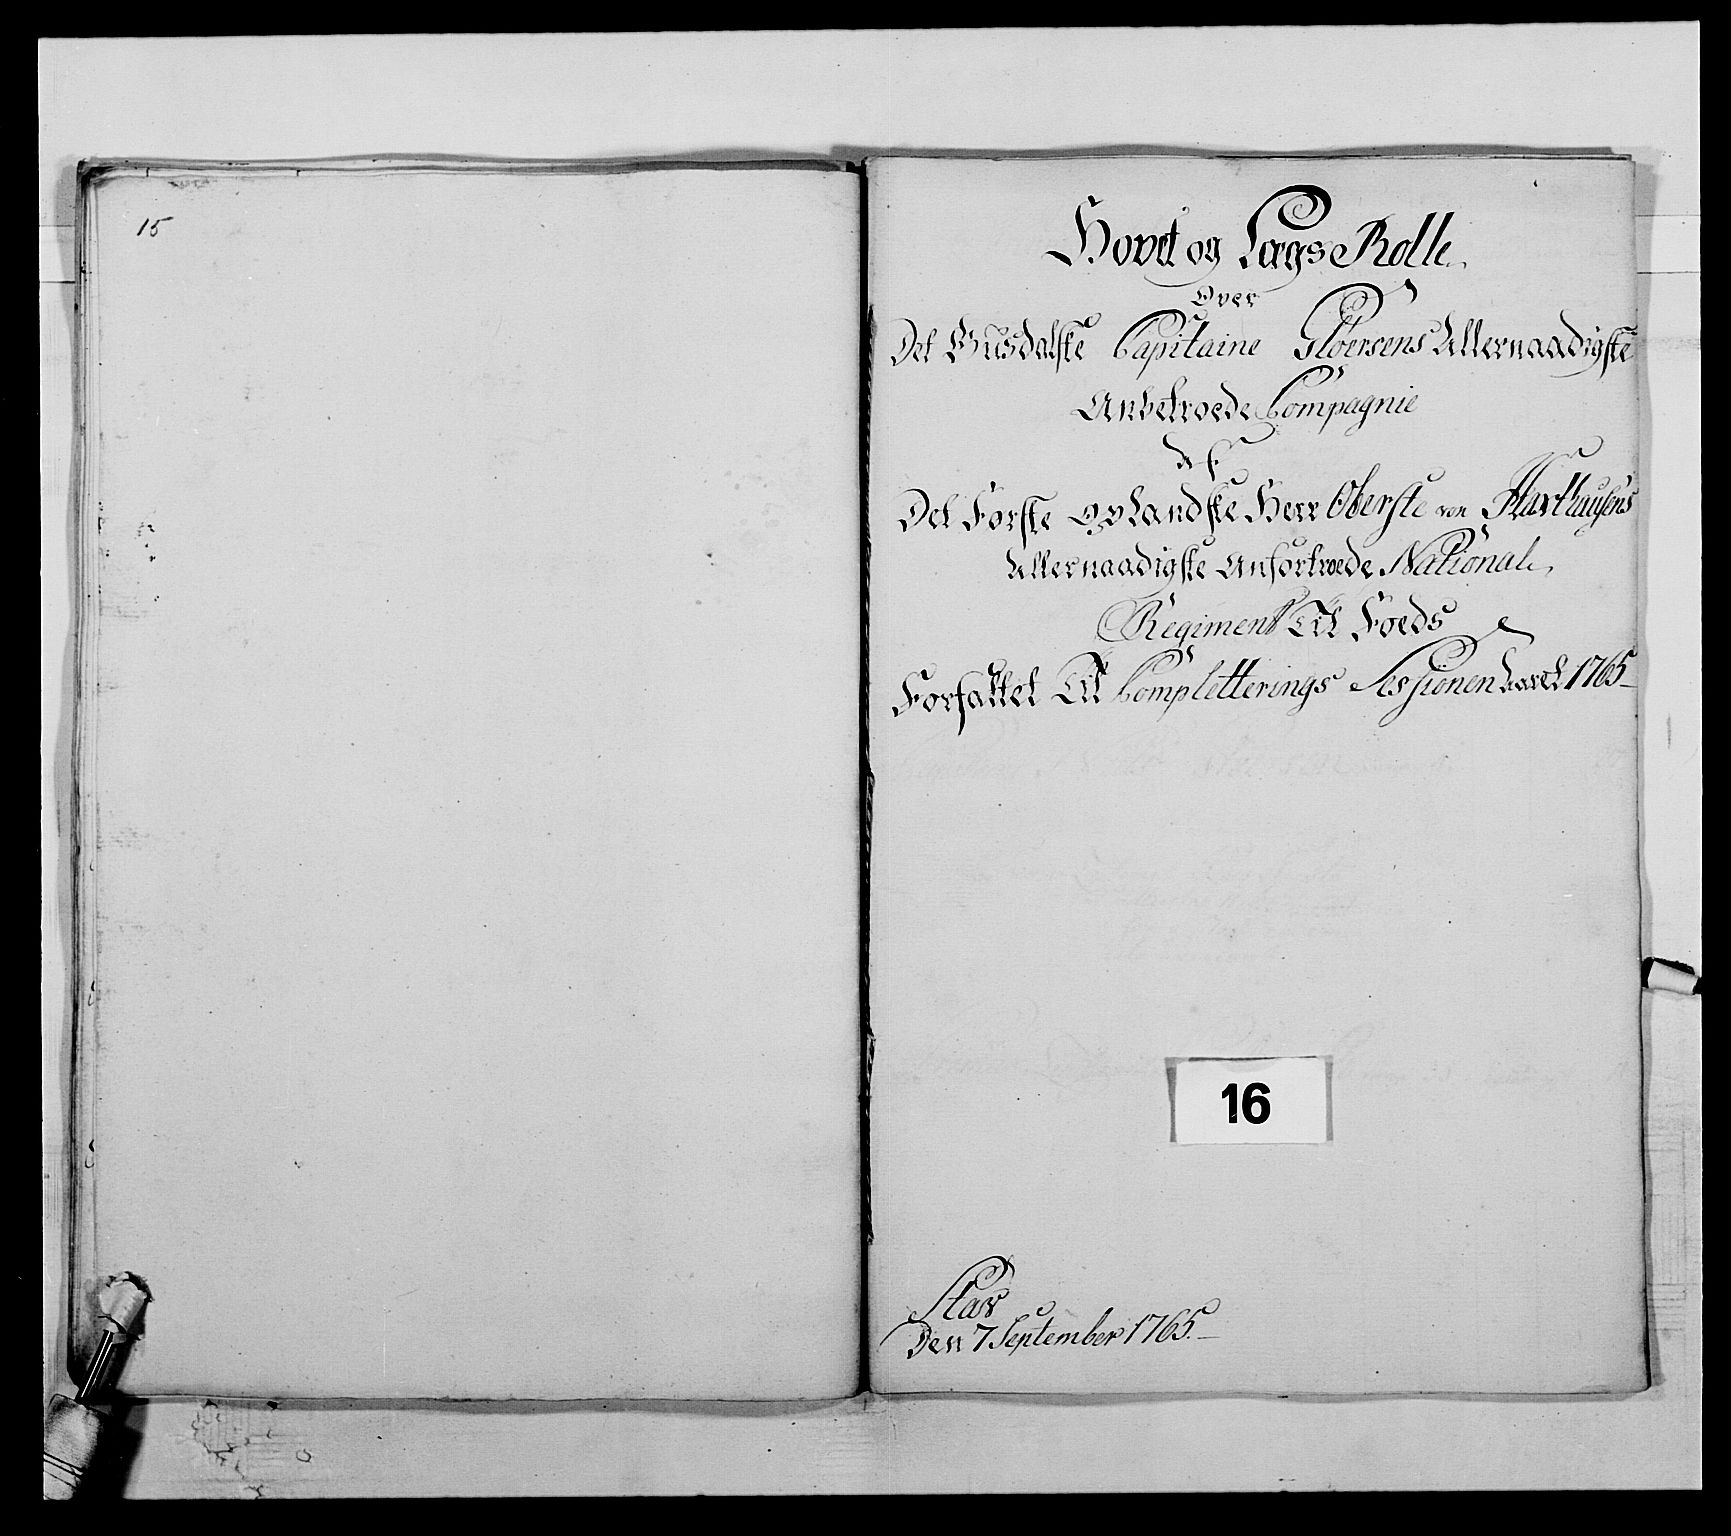 15
Hovet og Lægs Rolle
Over
Det Gusdalske Capitaine Gloersens Allernaadigste
Anbetroede Compagnie
Af
Det Første Oplandske Herr Oberste von Haxthausens
Allernaadigste Anfortroede National
Regiment Til Foeds
Forfattet Til Completterings Sessionen 1765
16
Den 7 September 1765.